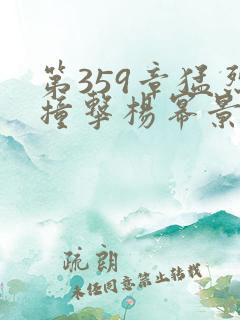 第359章猛烈
撞撃楊冪景
疏朗
未经同意禁止转载